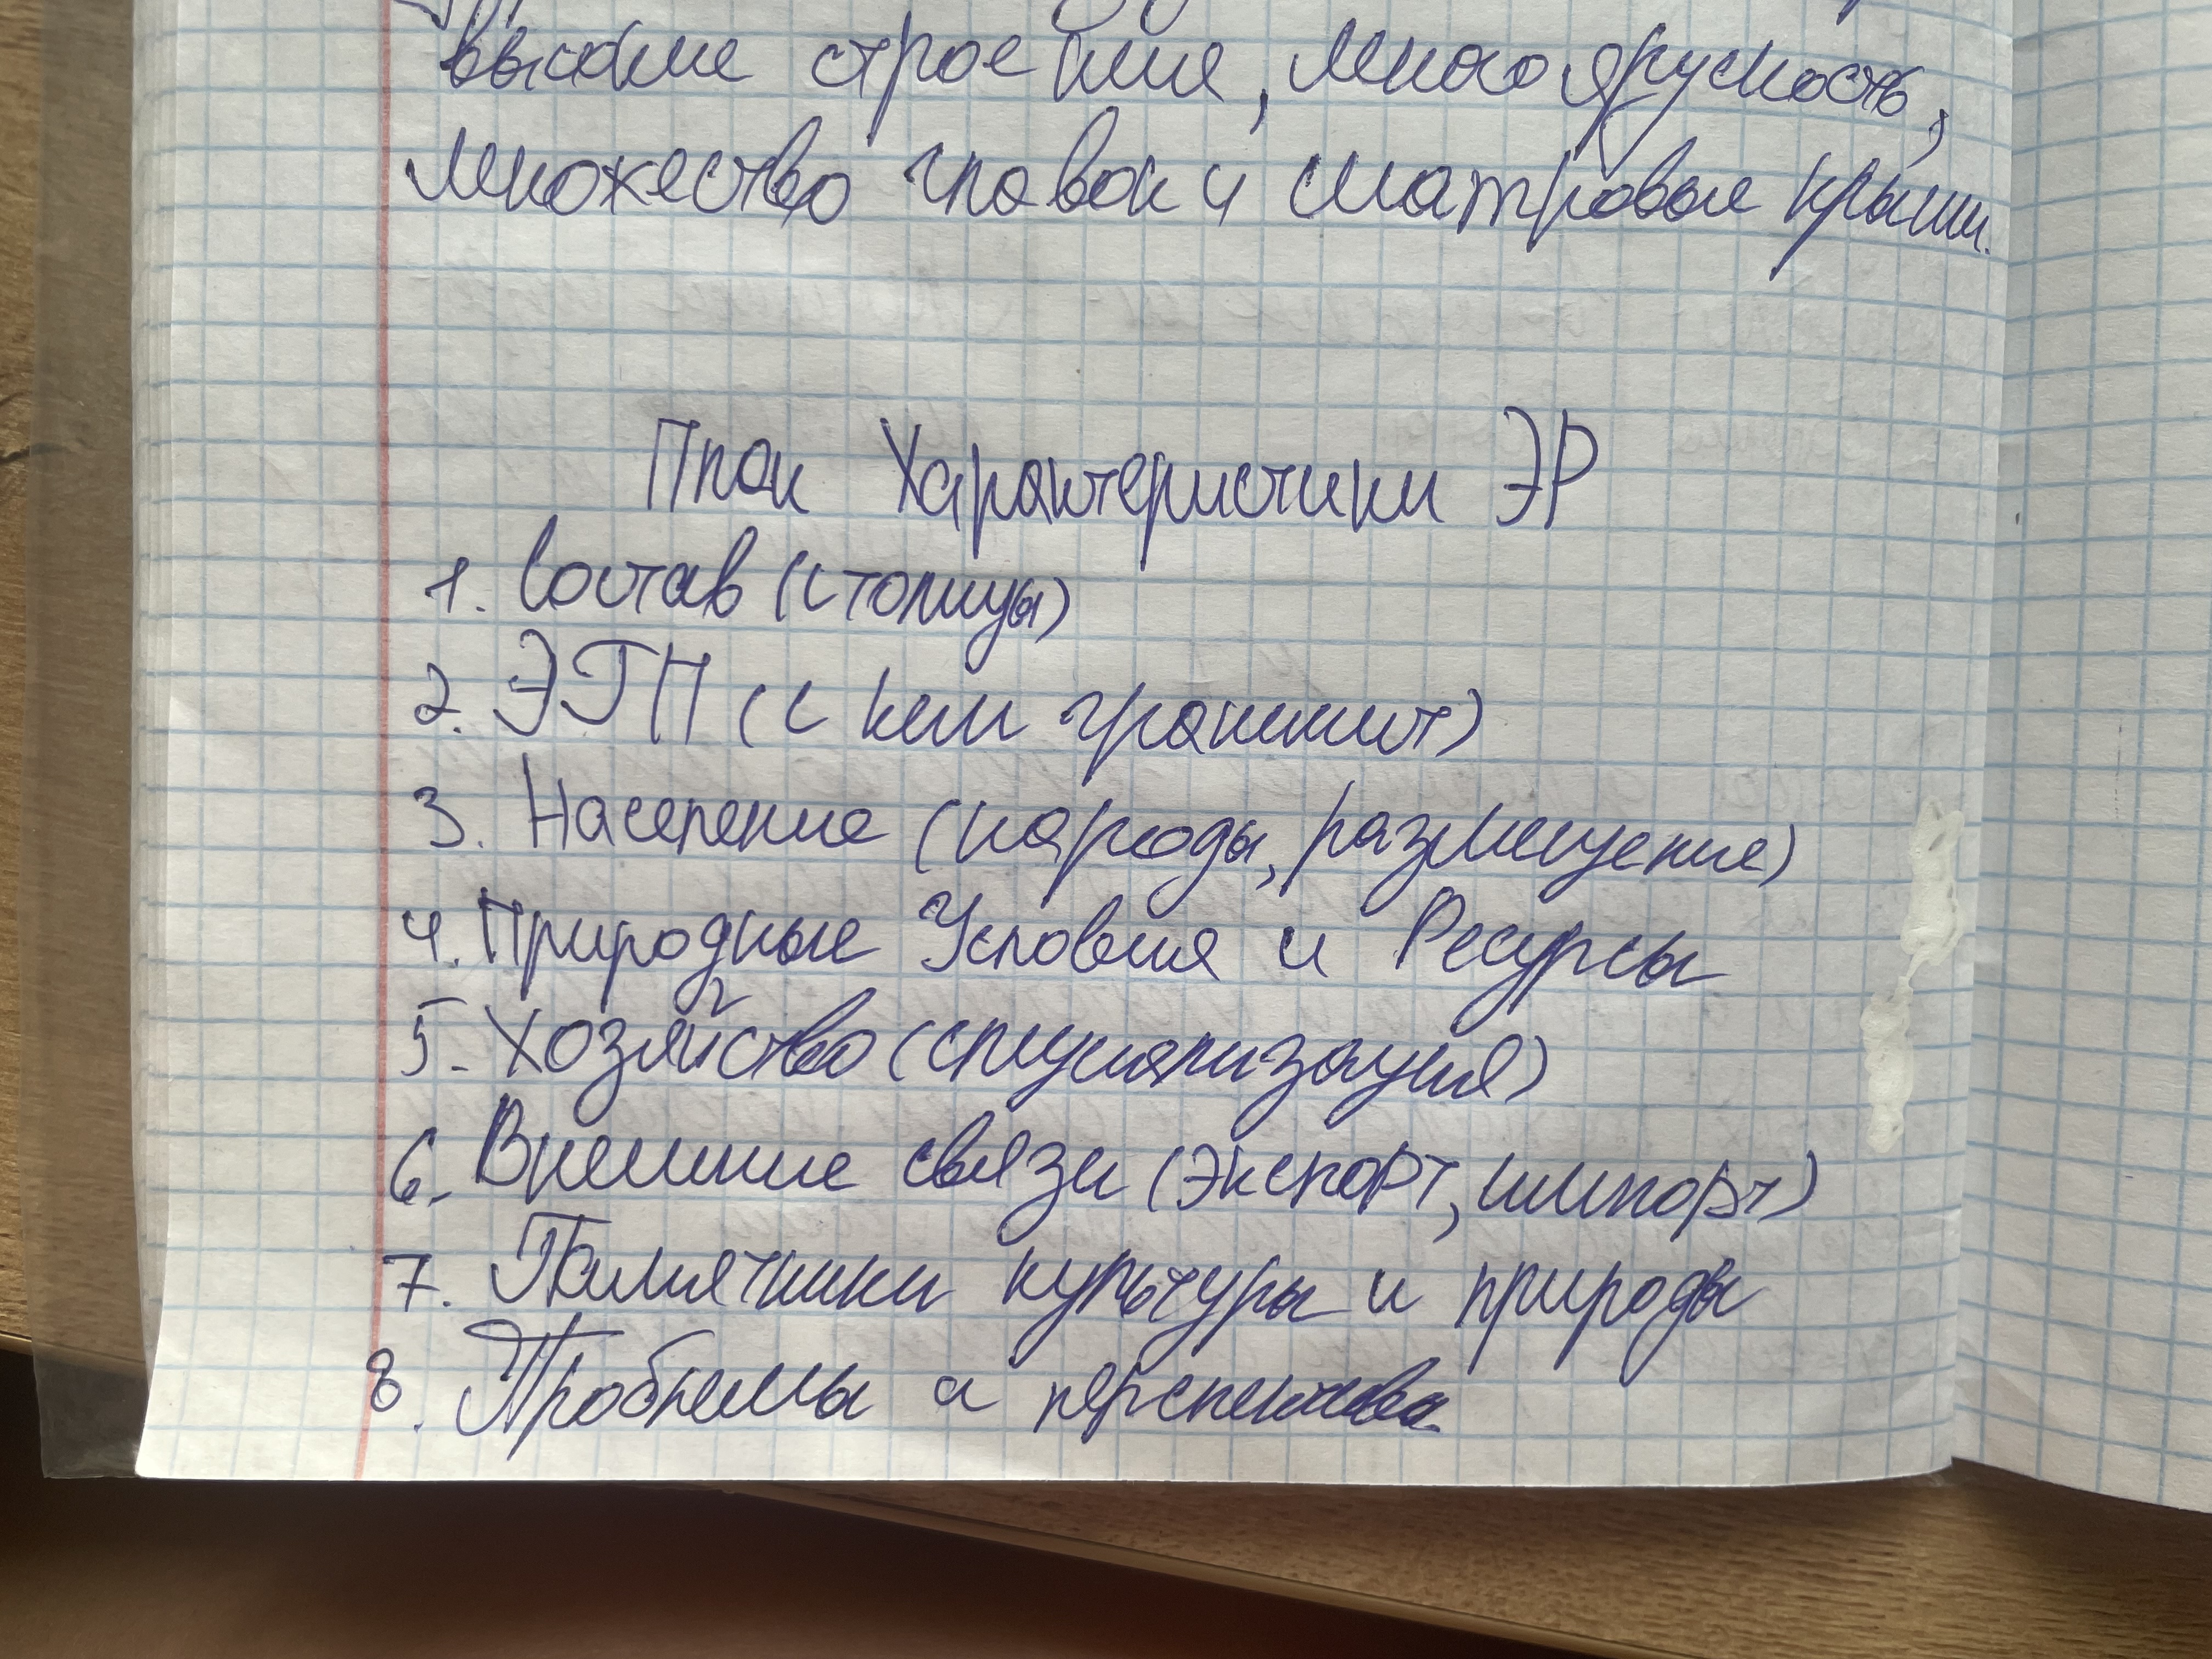 высокие строения, многоярусность,
множество главок и шатровые крыши.
План Характеристики ЭР
1. Состав (столицы)
2. ЭГП (с кем граничит)
3. Население (народы, размещение)
4. Природные Условия и Ресурсы
5. Хозяйство (специализация)
6. Внешние связи (экспорт, импорт)
7. Памятники культуры и природы
8. Проблемы и перспектива